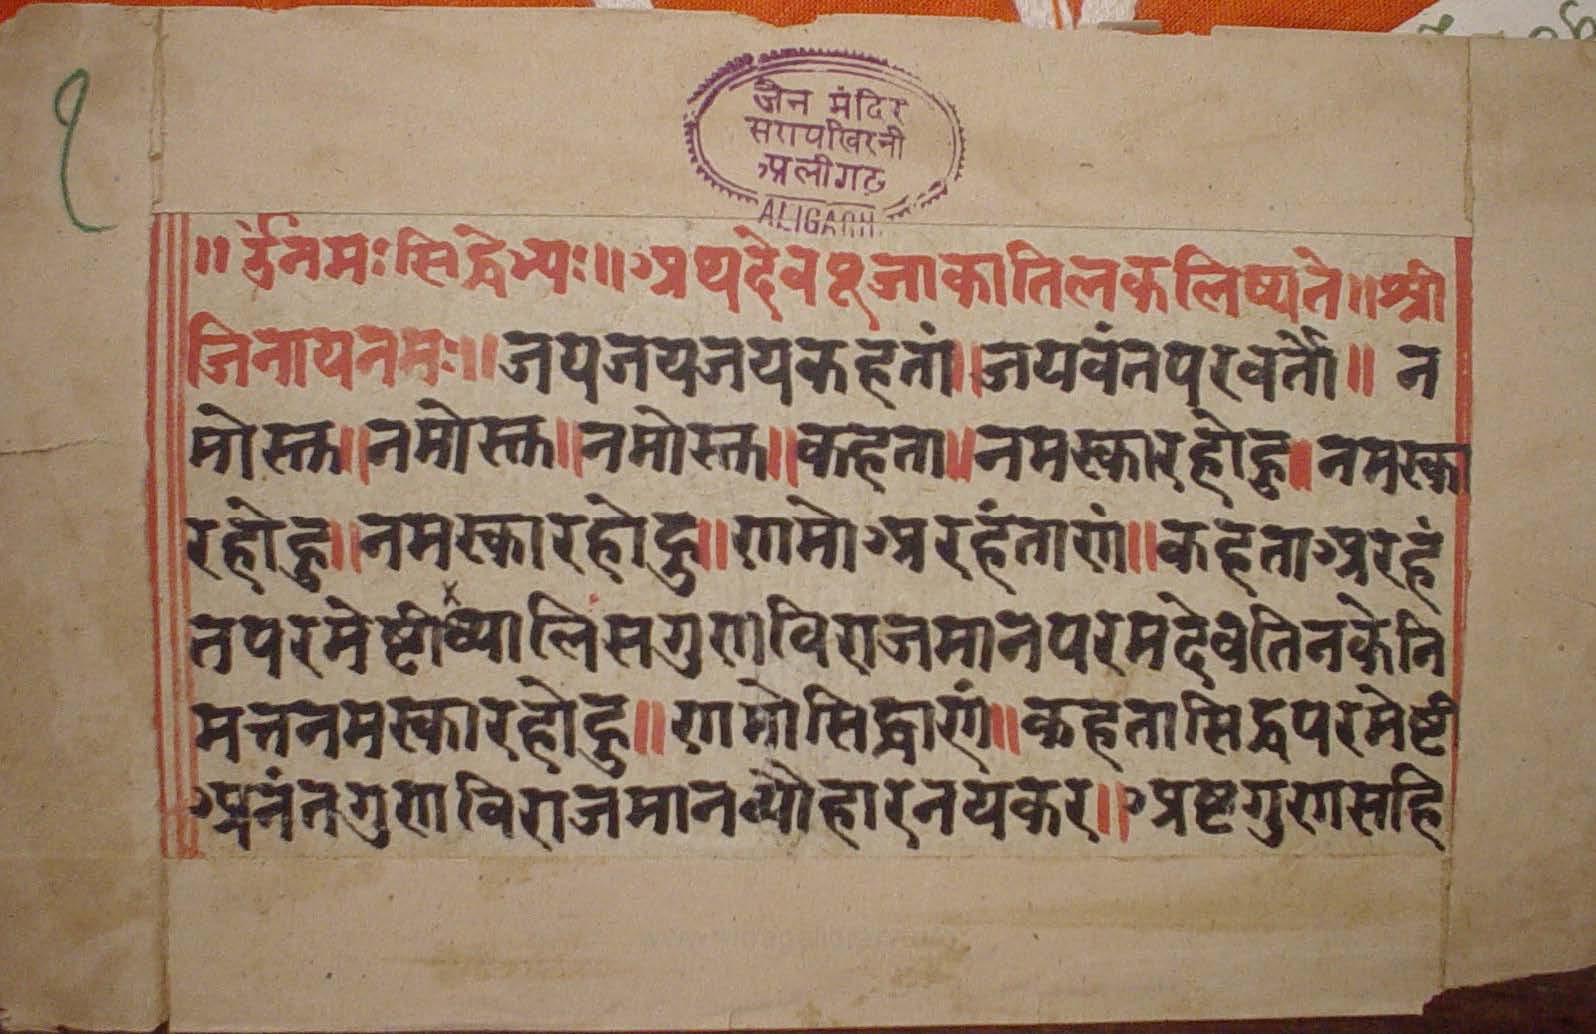 १
जैन मंदिर
सरायखिरनी
अलीगढ़
ALIGARH.
॥ र्उनमःसिद्धेभ्यः॥अथदेवपूजाकातिलकलिष्यते॥श्री
जिनायनमः॥जयजयजयकहतां॥जयवंतपरवर्तौ॥ न
मोस्त॥नमोस्त॥नमोस्त॥कहता॥नमस्कारहोहु॥नमस्का
रहोहु॥नमस्कारहोहु॥णमोअरहंताणं॥कहताअरहं
तपरमेष्टीछ्यालिसगुणविराजमानपरमदेवतिनकेनि
मत्तनमस्कारहोहु॥णमोसिद्धाणं॥कहतासिद्धपरमेष्टी
अनंतगुणविराजमानव्योहारनयकर॥अष्टगुणसहि